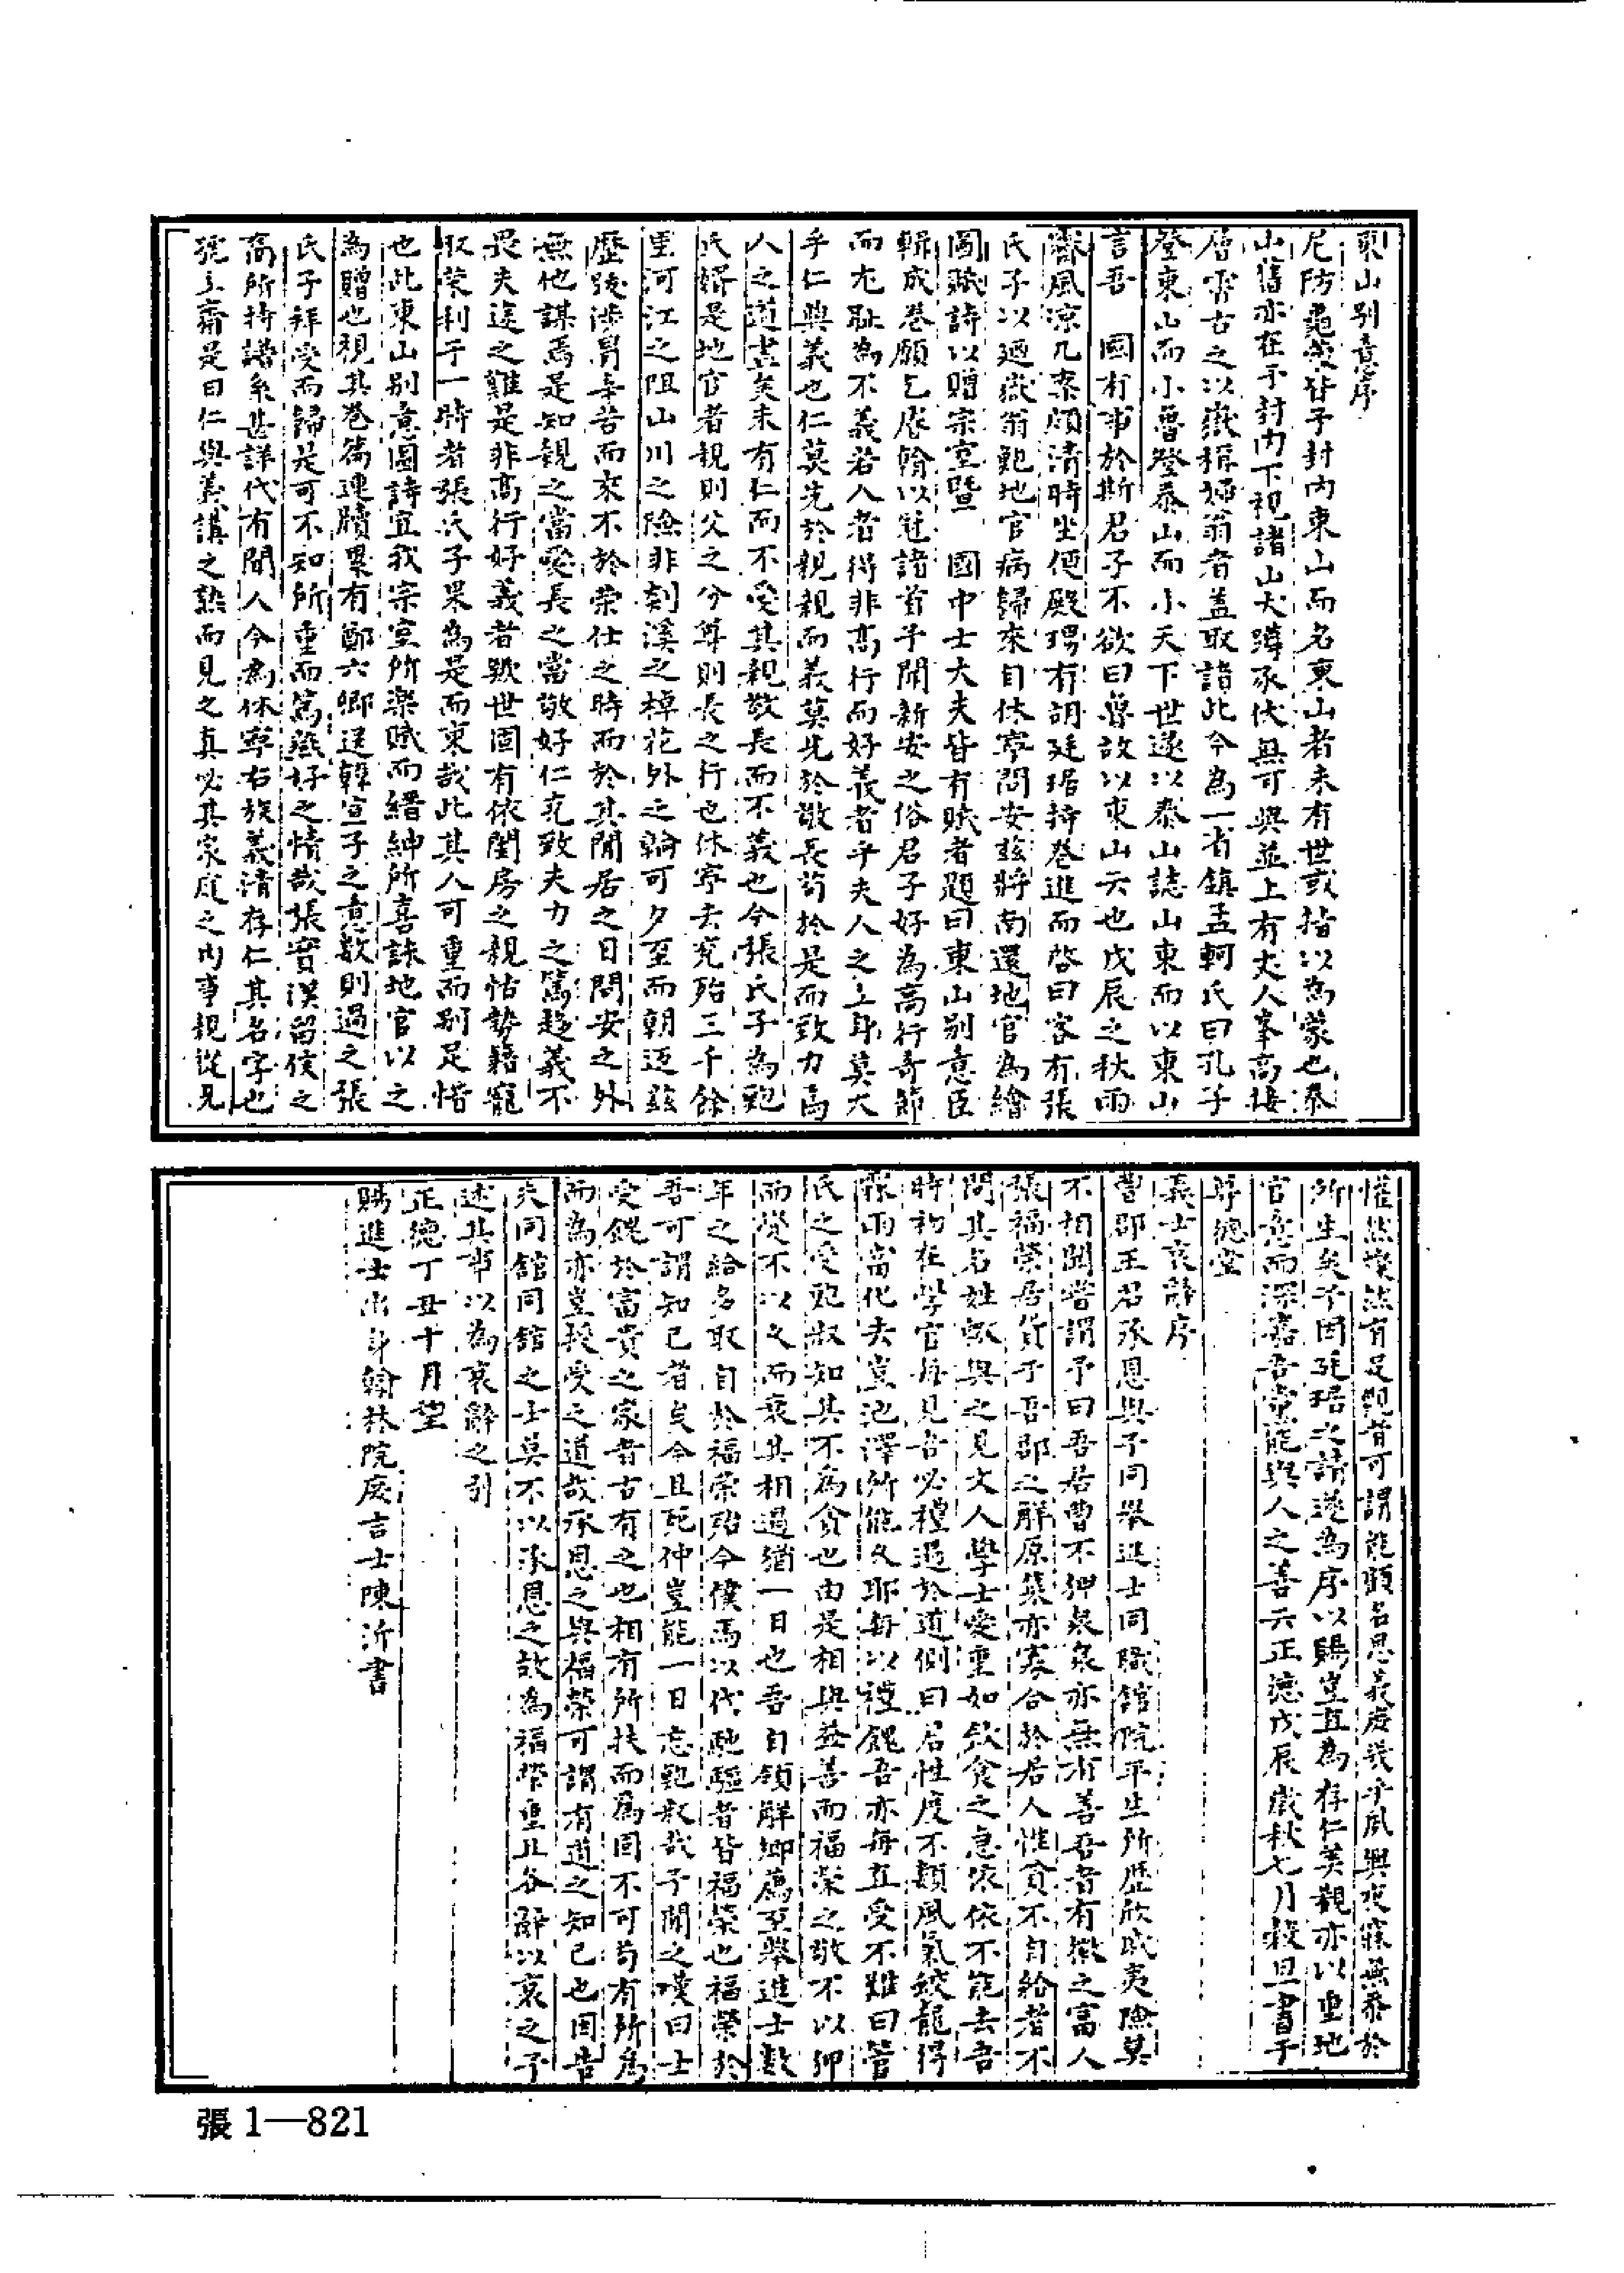 東山別意序
尼防龜蒙皆予封內東山而名東山者未有世或指以為蒙也泰
山舊亦在予封內下視諸山犬蹲豕伏無可與並上有丈人峯高接
層霄古之以嶽稱婦翁者盖取諸此今為一省鎮孟軻氏曰孔子
登東山而小魯登泰山而小天下世遂以泰山誌山東而以東山
言吾　國有事於斯君子不欲曰魯故以東山云也戊辰之秋雨
霽風凉几案頗清時坐便殿瑒有詞廷琚持卷進而啓曰客有張
氏子以廼嶽翁鮑地官病歸來自休寧問安玆將南還地官為繪
圖賦詩以贈宗室暨　國中士大夫皆有賦者題曰東山別意臣
輯成卷願乞展翰以冠諸首予聞新安之俗君子好為高行奇節
而尤耻為不義若人者得非高行而好義者乎夫人之立身莫大
乎仁與義也仁莫先於親親而義莫先於敬長苟於是而致力焉
人之道盡矣未有仁而不愛其親敬長而不義也今張氏子為鮑
氏婿是地官者親則父之分尊則長之行也休寧去兖殆三千餘
里河江之阻山川之險非剡溪之棹花外之輪可夕至而朝迈玆
歷跋涉冒辛苦而來不於榮仕之時而於其閒居之日問安之外
無他謀焉是知親之當愛長之當敬好仁克致夫力之篤趍義不
畏夫途之難是非高行好義者歟世固有依閨房之親怙勢籍寵
取荣利于一時者張氏子果為是而東哉此其人可重而別足惜
也此東山別意圖詩宜我宗室所樂賦而縉紳所喜詠地官以之
為贈也視其卷篇連牘累有鄭六卿送韓宣子之意數則過之張
氏子拜受而歸是可不知所重而篤燕好之情哉張實漢留侯之
裔所持譜系甚詳代有聞人今為休寧右族義清存仁其名字也
號立齋是曰仁與義講之熟而見之真必其家庭之內事親從兄
懽然燦然有足觀者可謂能顧名思義庶幾乎夙興夜寐無忝於
所生矣予因廷琚之請遂為序以賜豈直為存仁美觀亦以重地
官意而深嘉吾党能與人之善云正德戊辰歲秋七月穀旦書于
尊德堂
義士哀辭序
曹郡王君承恩與予同舉進士同職舘院平生所歷欣戚夷險莫
不相聞嘗謂予曰吾居曹不狎衆衆亦無有善吾者有徽之富人
張福榮居貨于吾郡之解原集亦寡合於居人性貪不自給者不
問其名姓輒與之見文人學士愛重如飲食之急依依不能去吾
時初在學官每見吾必禮遇於道側曰居性度不類風氣蛟龍得
霖雨當化去豈池澤所能久耶每以禮餽吾亦每直受不難曰管
氏之受鮑叔知其不為貪也由是相與益善而福榮之敬不以狎
而變不以久而衰其相遇猶一日也吾自領觧鄉薦至舉進士数
年之給多取自於福荣殆今僕馬以代馳驅者皆福榮也福榮於
吾可謂知己者矣今且死仲豈能一日忘鮑叔哉予聞之嘆曰士
受餽於富貴之家者古有之也相有所扶而爲固不可苟有所爲
而為亦豈授受之道哉承恩之與福榮可謂有道之知己也因告
夫同舘同舘之士莫不以承恩之故為福榮重且各辭以哀之予
述其事以為哀辭之引
正德丁丑十月望
賜進士出身翰林院庶吉士陳沂書
張 1—821